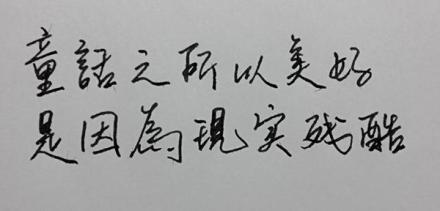 童話之所以美好
是因為現实残酷